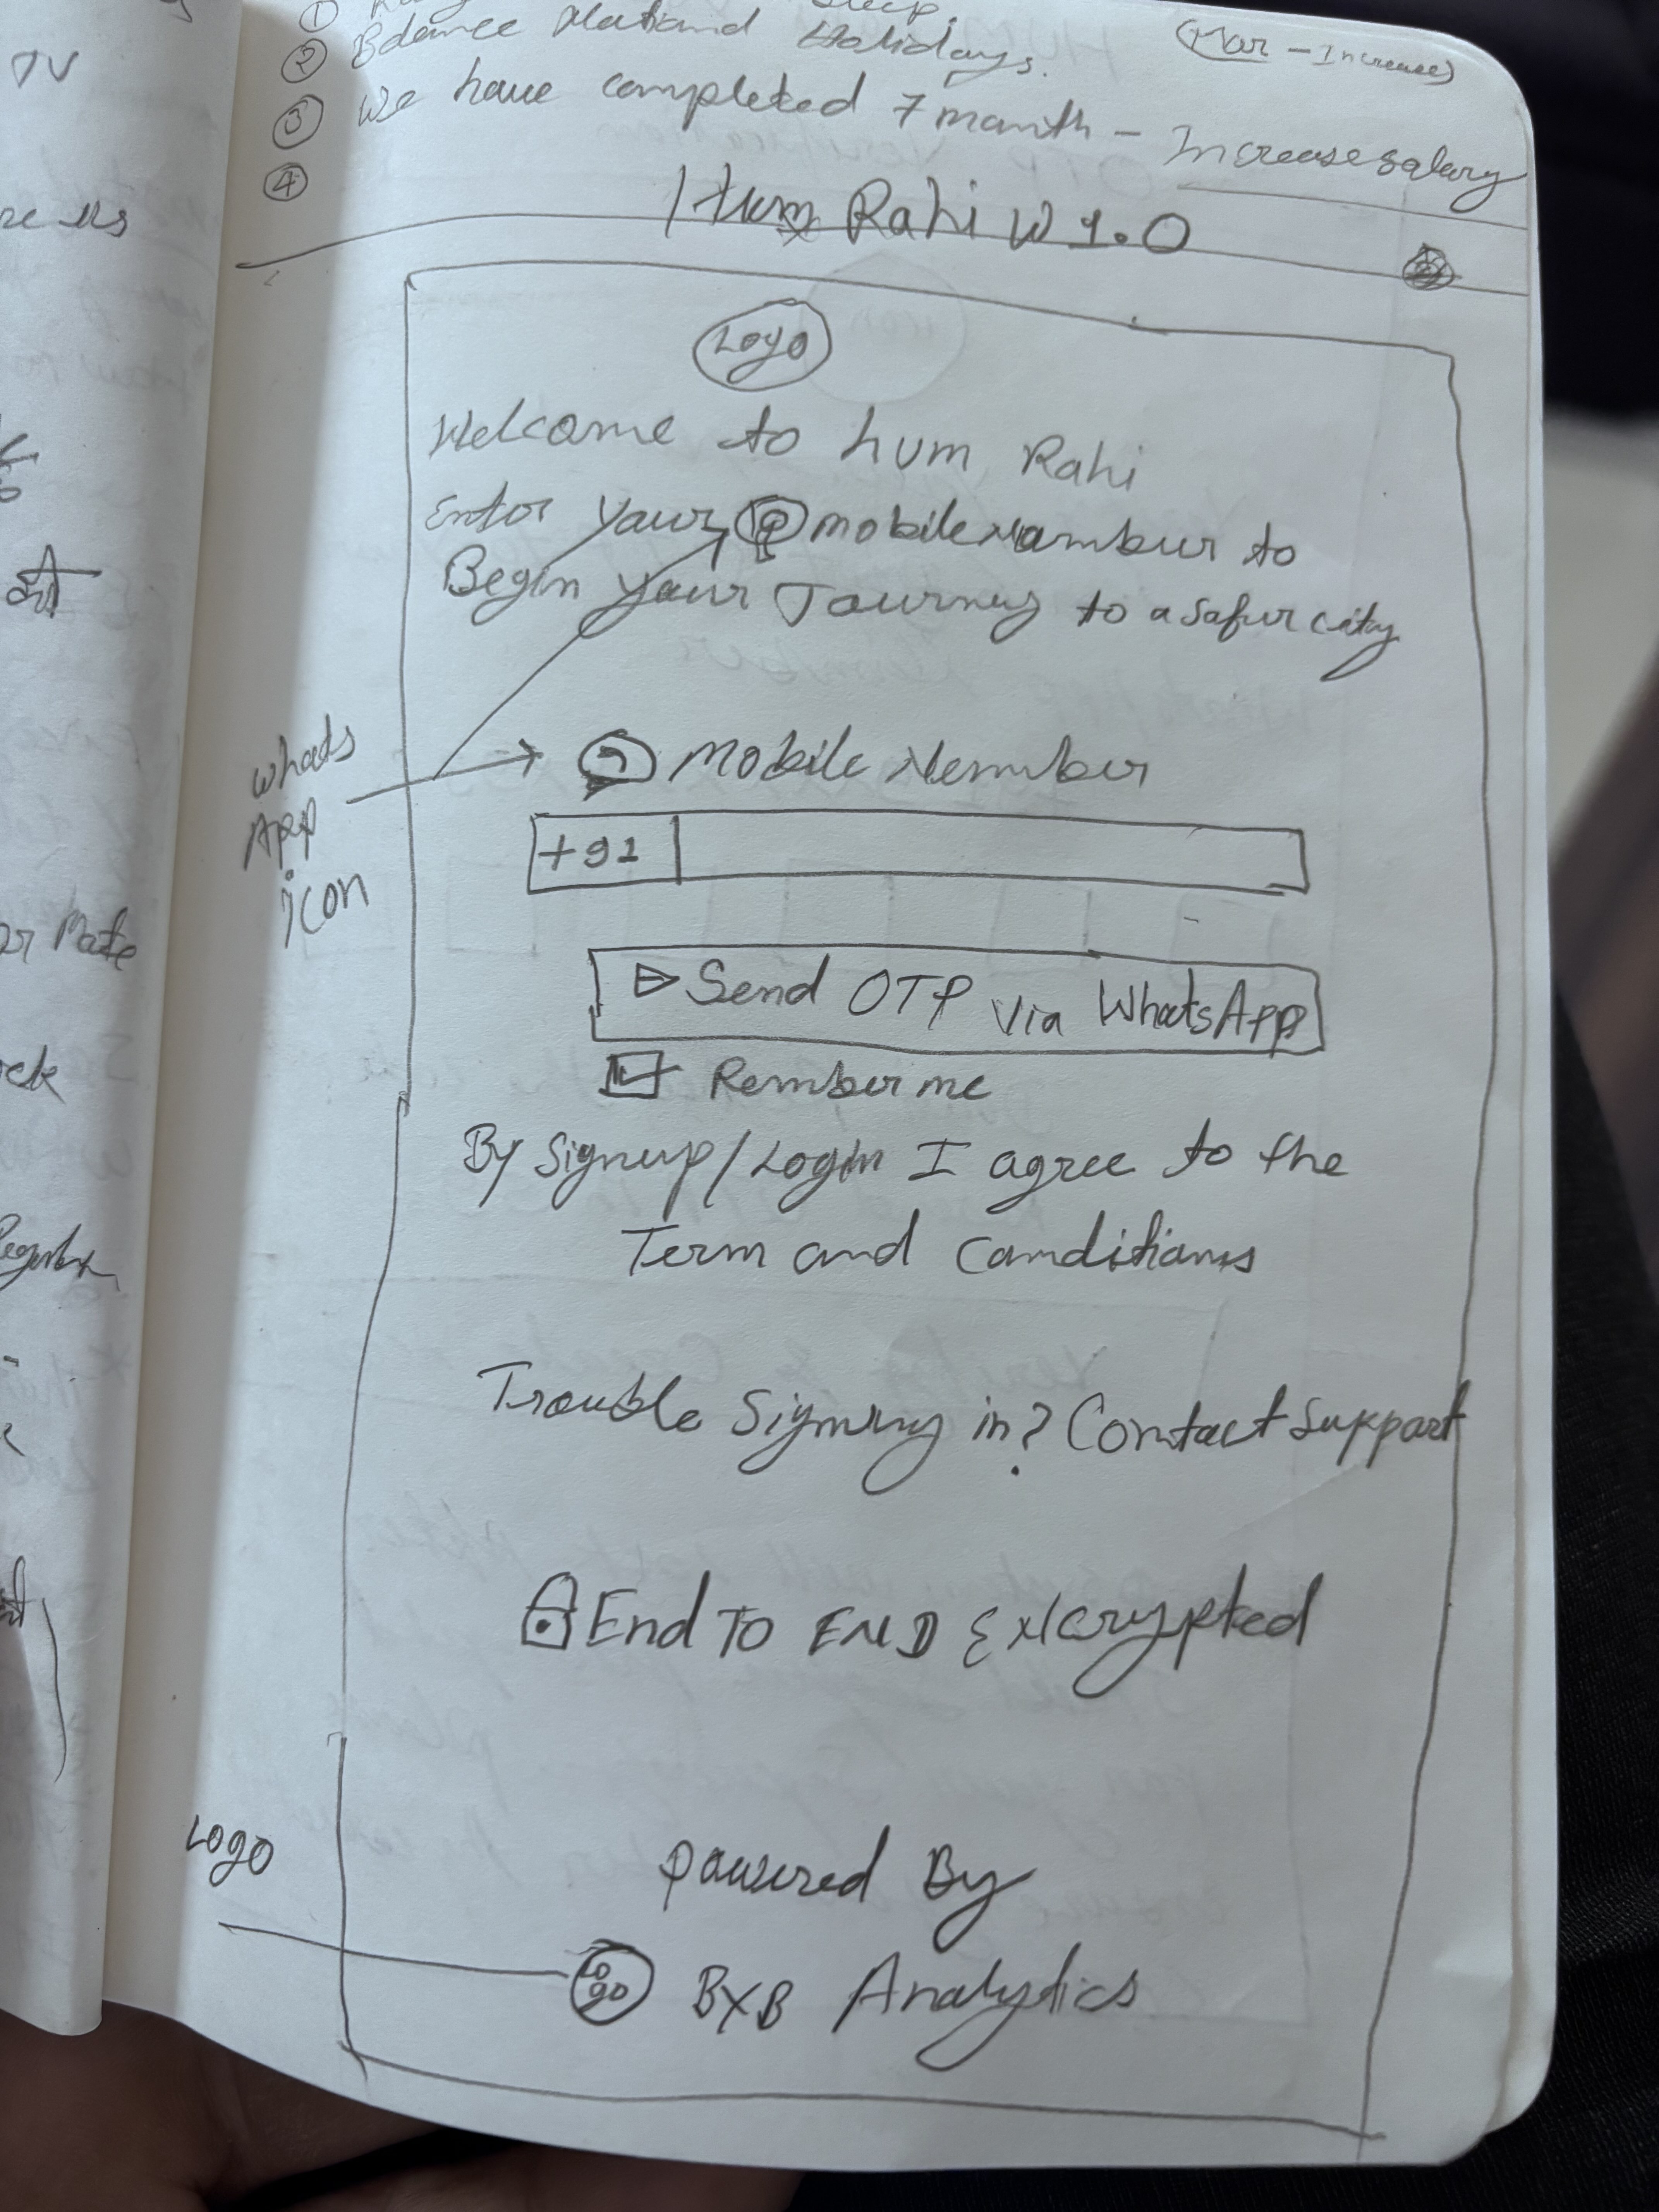 ①
② Balance National Holidays.
(Mar - Increase)
③ We have completed 7 month - Increase salary
④
Hum Rahi W 1.0
Logo
Welcome to hum Rahi
Enter your mobile Number to
Begin your Journey to a Safer city
whats
App
icon
Mobile Number
+91
Send OTP via WhatsApp
Rember me
By Signup/Login I agree to the
Term and Conditions
Trouble Signing in? Contact Support
End To END ENcrypted
Logo
powered By
Logo BXB Analytics
re us
or Mate